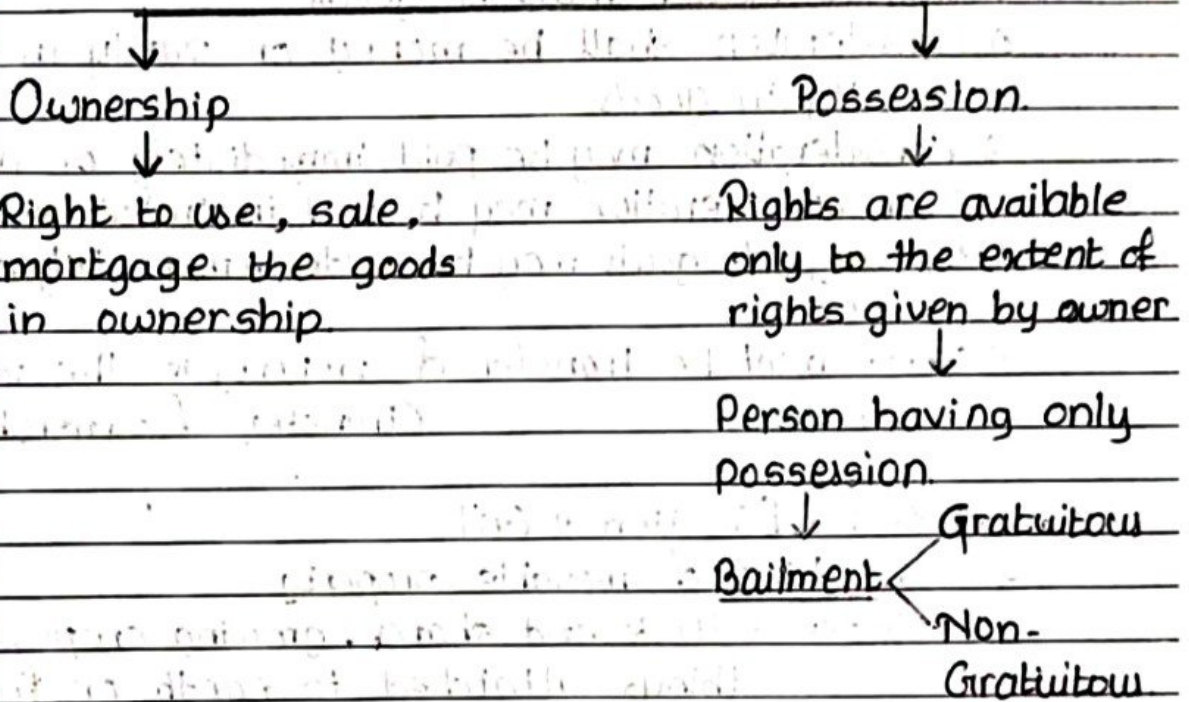 Ownership
Possession.
Right to use, sale,
mortgage the goods
in ownership
Rights are available
only to the extent of
rights given by owner
Person having only
possession.
Bailment
Gratuitous
Non-
Gratuitous